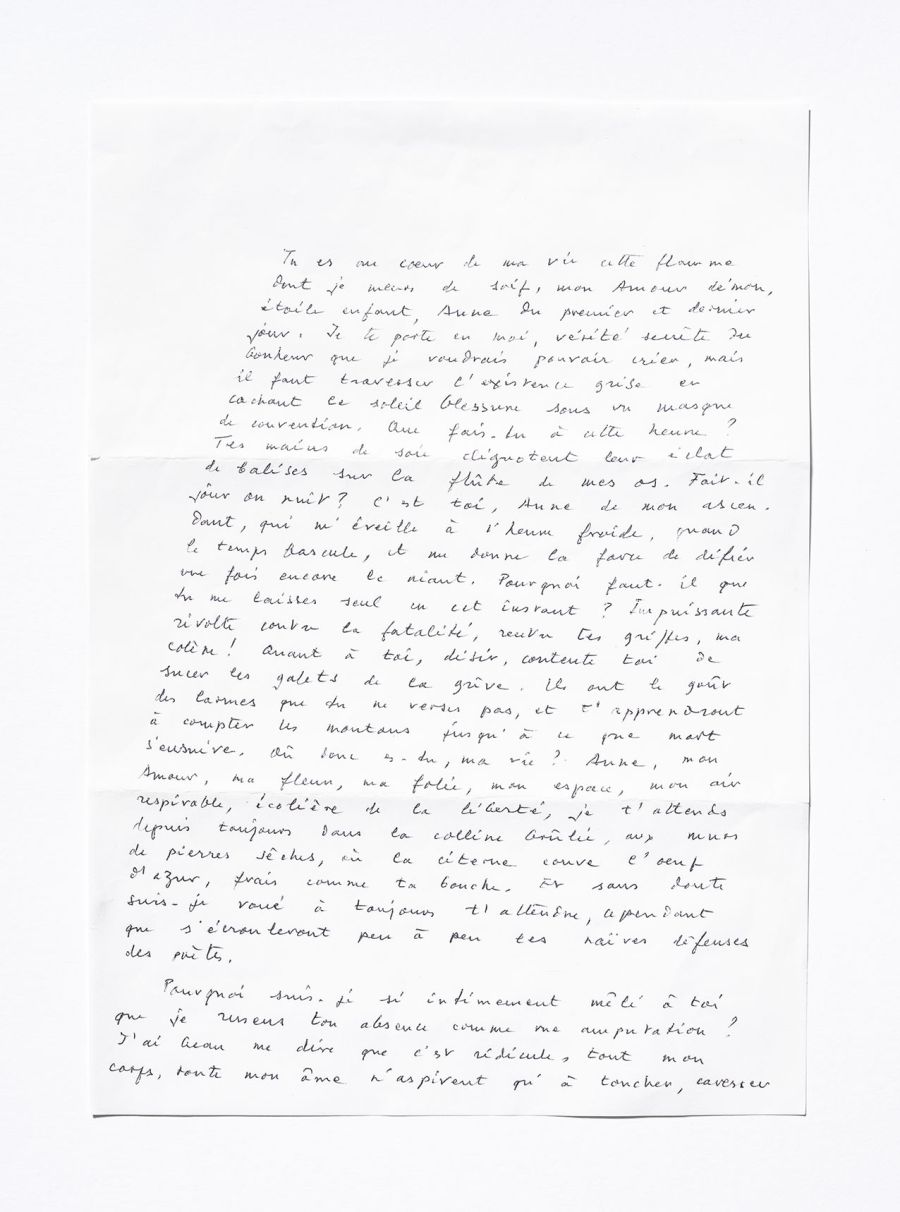 Tu es au coeur de ma vie cette flamme
dont je meurs de soif, mon Amour démon,
étoile enfant, Anne du premier et dernier
jour. Je te porte en moi, vérité secrète du
bonheur que je voudrais pouvoir crier, mais
il faut traverser l'existence grise en
cachant le soleil blessure sous un masque
de convention. Que fais-tu à cette heure ?
Tes mains de soie clignotent leur éclat
de balises sur la flûte de mes os. Fait-il
jour ou nuit ? C'est toi, Anne de mon ascen-
dant, qui m'éveille à l'heure froide, quand
le temps bascule, et me donne la force de défier
une fois encore le néant. Pourquoi faut-il que
tu me laisses seul en cet instant ? Impuissante
révolte contre la fatalité, rentre tes griffes, ma
colère ! Quant à toi, désir, contente toi de
sucer les galets de la grève. Ils ont le goût
des larmes que tu ne verses pas, et t'apprendront
à compter les moutons jusqu'à ce que mort
s'ensuive. Où donc es-tu, ma vie ? Anne, mon
Amour, ma fleur, ma folie, mon espace, mon air
respirable, écolière de la liberté, je t'attends
depuis toujours dans la colline brûlée, aux murs
de pierres sèches, où la citerne couve l'oeuf
d'azur, frais comme ta bouche. Et sans doute
suis-je voué à toujours t'attendre, cependant
que s'écrouleront peu à peu tes naïves défenses
des poètes.
Pourquoi suis-je si intimement mêlé à toi
que je ressens ton absence comme une amputation ?
J'ai beau me dire que c'est ridicule, tout mon
corps, toute mon âme n'aspirent qu'à toucher, caresser